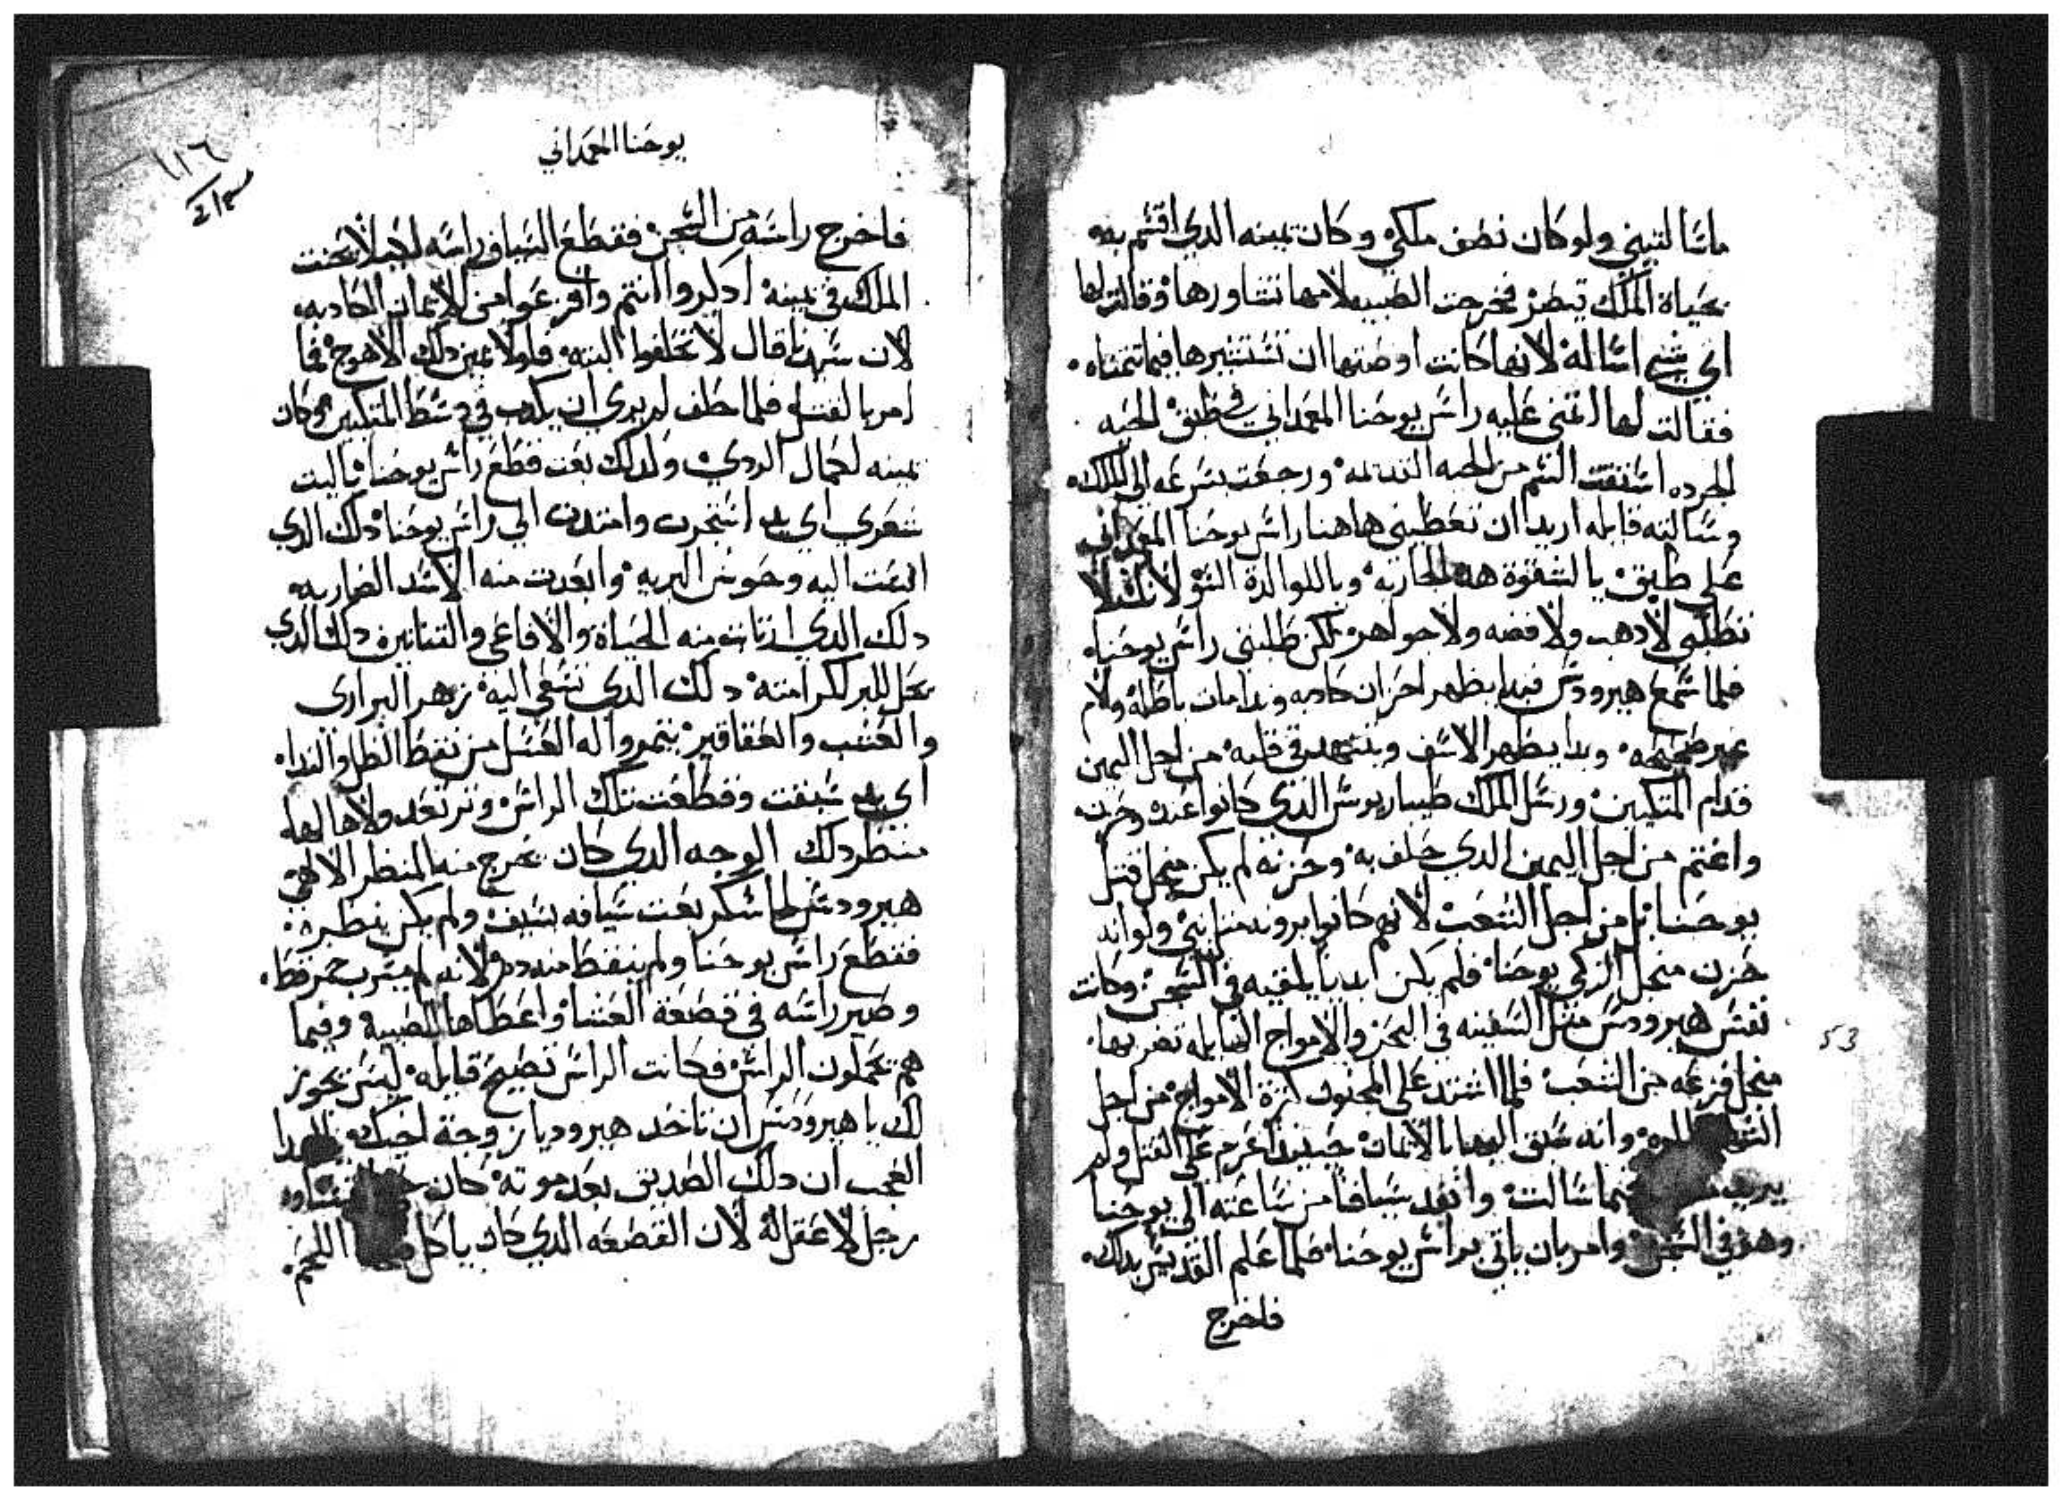 ماسالتيني ولو كان نصف ملكي وكان يمينه الدي اقسم به
بحياة الملك تيطس فخرجت الصبيه لامها تشاورها وقالت لها
اي شي اساله لانها كانت اوصتها ان تستشيرها فيما تتمناه
فقالت لها اتمني عليه راس يوحنا المعمداني في طبق الحيه
الجرده استقت السم من الحيه القديمه ورجعت بسرعه الي الملك
وسالته قايله اريد ان تعطيني هاهنا راس يوحنا المعمداني
علي طبق يا لشقوة هده الجاريه ويا للوالدة السو لانك لا
تطلبي لا دهب ولا فضه ولا جواهر لكن طلبتي راس يوحنا
فلما سمع هيرودس فبدا يظهر احزان كادبه وندامات باطله ولام
غير صحيحه وبدا يظهر الاسف ويتنهد في قلبه من اجل اليمين
قدام المتكيين ورسل الملك طيباريوس الدي كانوا عنده وحزن
واغتم من اجل اليمين الدي حلف به وحزنه لم يكن منجل قتل
يوحنا بل من اجل الشعب لانهم كانوا يرونه مثل نبي ولو انه
حزن منجل الزكي يوحنا فلم يكن ابديا يلقيه في السجن وكانت
نفس هيرودس مثل السفينه في البحر والامواج السايله تضربها
منجل فزعه من الشعب فلما اشتد علي المجنون كثرة الامواج من اجل
وانه سقي اليها بالايمان حينيدا عزم علي القتل ولم
يرد سالت وانفد سيافا من ساعته الي يوحنا
وهو في السجن وامر بان ياتي براس يوحنا فلما علم القديس بدلك
فاخرج
١١٦
يوحنا المعمداني
فاخرج راسه من السجن فقطع السياف راسه لكيلا يحنث
الملك في يمينه ادكروا انتم وافزعوا من الايمان الكادبه
لان سيدنا قال لا تحلفوا البته فلولا يمين دلك الاهوج فما
امر بالقتل فلما حلف لم يري ان يكدب في وسط المتكيين وكان
يمينه لكمال الردي ولدلك بعت فقطع راس يوحنا ياليت
شعري اي يد استجرت وامتدت الي راس يوحنا دلك الدي
اتبعت اليه وحوش البريه وابعدت منه الاسد الضاريه
دلك الدي ارتاعت منه الحياة والافاعي والتنانين دلك الدي
نحل البر لكرامته دلك الدي تشقي اليه زهر البراري
والعشب والعقاقير يثمروا له العسل من نقط الطل والندا
اي يد سيفت وقطعت تلك الراس ولم ترتعد ولا هالها
منظر دلك الوجه الدي كان يخرج منه المنظر الالاهي
هيرودس لما سكر بعت سيافه بسيف ولم يكن ينظره
فقطع راس يوحنا ولم يسقط منه دم لانه لم يشرب خمر قط
وصير راسه في قصعة العشا واعطاها للصبية وفيما
هم يحملون الراس فكانت الراس تصيح قايله ليس يجوز
لك يا هيرودس ان تاخد هيروديا زوجة اخيك
العجب ان دلك الصديق بعد موته كان
رجل لا عقل له لان القصعه الدي كان ياكل اللحم
53